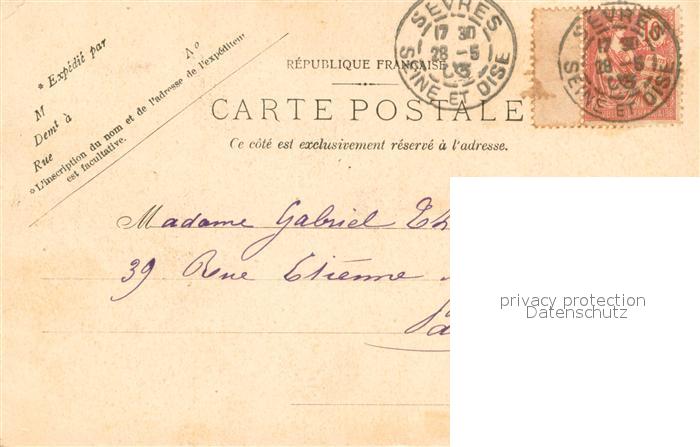 * Expédié par
M
Demt à
Rue
No
* L'inscription du nom et de l'adresse de l'expéditeur
est facultative.
RÉPUBLIQUE FRANÇAISE
CARTE POSTALE
Ce côté est exclusivement réservé à l'adresse.
SÈVRES
17 30
28 -5
03
SEINE ET OISE
SÈVRES
17 30
28 -5
03
SEINE ET OISE
10
Madame Gabriel
39 Rue Etienne
privacy protection
Datenschutz